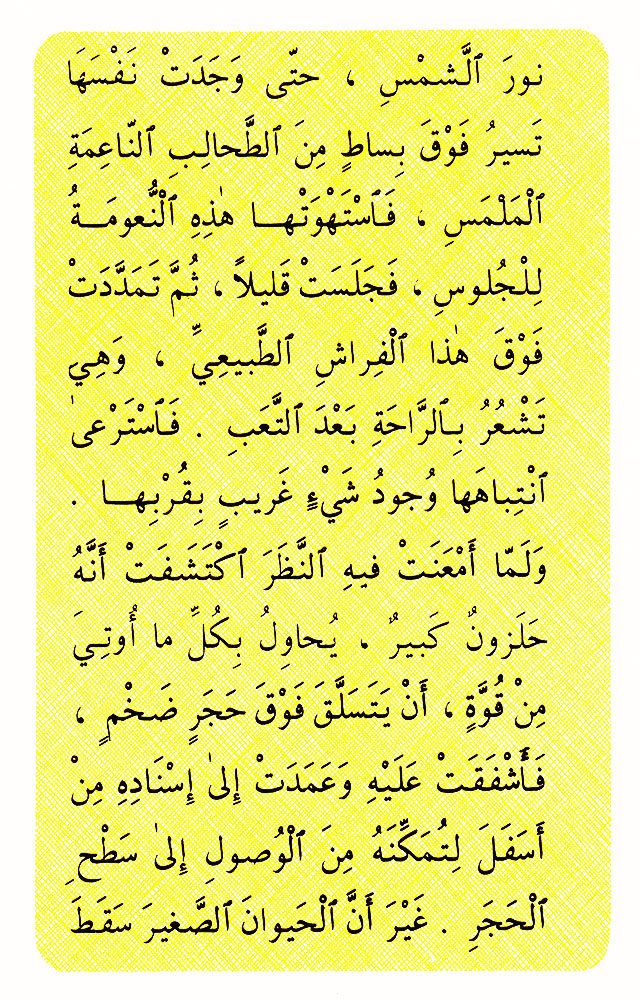 نورَ ٱلَّشمْسِ ، حتّى وَجَدَتْ نَفْسَهَا
تَسيرُ فَوْقَ بِساطٍ مِنَ ٱلطَّحالِبِ ٱلنّاعِمَةِ
ٱلْمَلْمَسِ ، فَٱسْتَهْوَتْهـا هٰذِهِ ٱلْنُّعومَـةُ
لِلْجُلوسِ ، فَجَلَسَتْ قَليلاً ، ثُمَّ تَمَدَّدَتْ
فَوْقَ هٰذا ٱلْفِراشِ ٱلطَّبيعِيِّ ، وَهِيَ
تَشْعُرُ بِٱلرَّاحَةِ بَعْدَ ٱلتَّعَبِ . فَٱسْتَرْعىٰ
ٱنْتِباهَها وُجودُ شَيْءٍ غَريبٍ بِقُرْبِهـا .
وَلَمّا أَمْعَنَتْ فيهِ ٱلنَّظَرَ ٱكْتَشَفَتْ أَنَّهُ
حَلَزونٌ كَبيرٌ ، يُحاوِلُ بِكُلِّ ما أُوتِيَ
مِنْ قُوَّةٍ ، أَنْ يَتَسَلَّقَ فَوْقَ حَجَرٍ ضَخْمٍ ،
فَأَشْفَقَتْ عَلَيْهِ وَعَمَدَتْ إِلىٰ إِسْنَادِهِ مِنْ
أَسَفَلَ لِتُمَكِّنَهُ مِنَ ٱلْوُصولِ إِلىٰ سَطْحِ
ٱلْحَجَرِ . غَيْرَ أَنَّ ٱلْحَيوانَ ٱلصَّغيرَ سَقَطَ